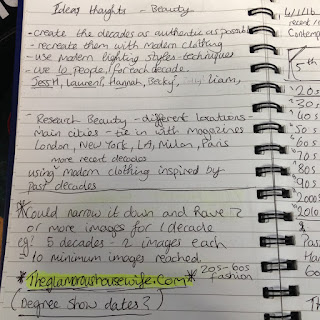 Ideas thoughts - Beauty
- create the decades as authentic as possible
- recreate them with modern clothing
- use modern lighting styles + techniques
- use 10 people, 1 for each decade.
Jess M, Lauren, Hannah, Becky, liam,
- Research Beauty - different locations -
main cities - tie in with magazines
London, New York, LA, Milan, Paris
more recent decades
using modern clothing inspired by
past decades
* Could narrow it down and have 2
or more images for 1 decade
eg! 5 decades - 2 images each
- 10 minimum images reached.
* Theglamoroushousewife.com *
20s-60s
fashion
(Degree show dates?)
4/1/16
recent
Contemp
5th
20s
30s
40s
50s
60s
70s
80s
90s
2000s
2010
Pas
Ha
Co